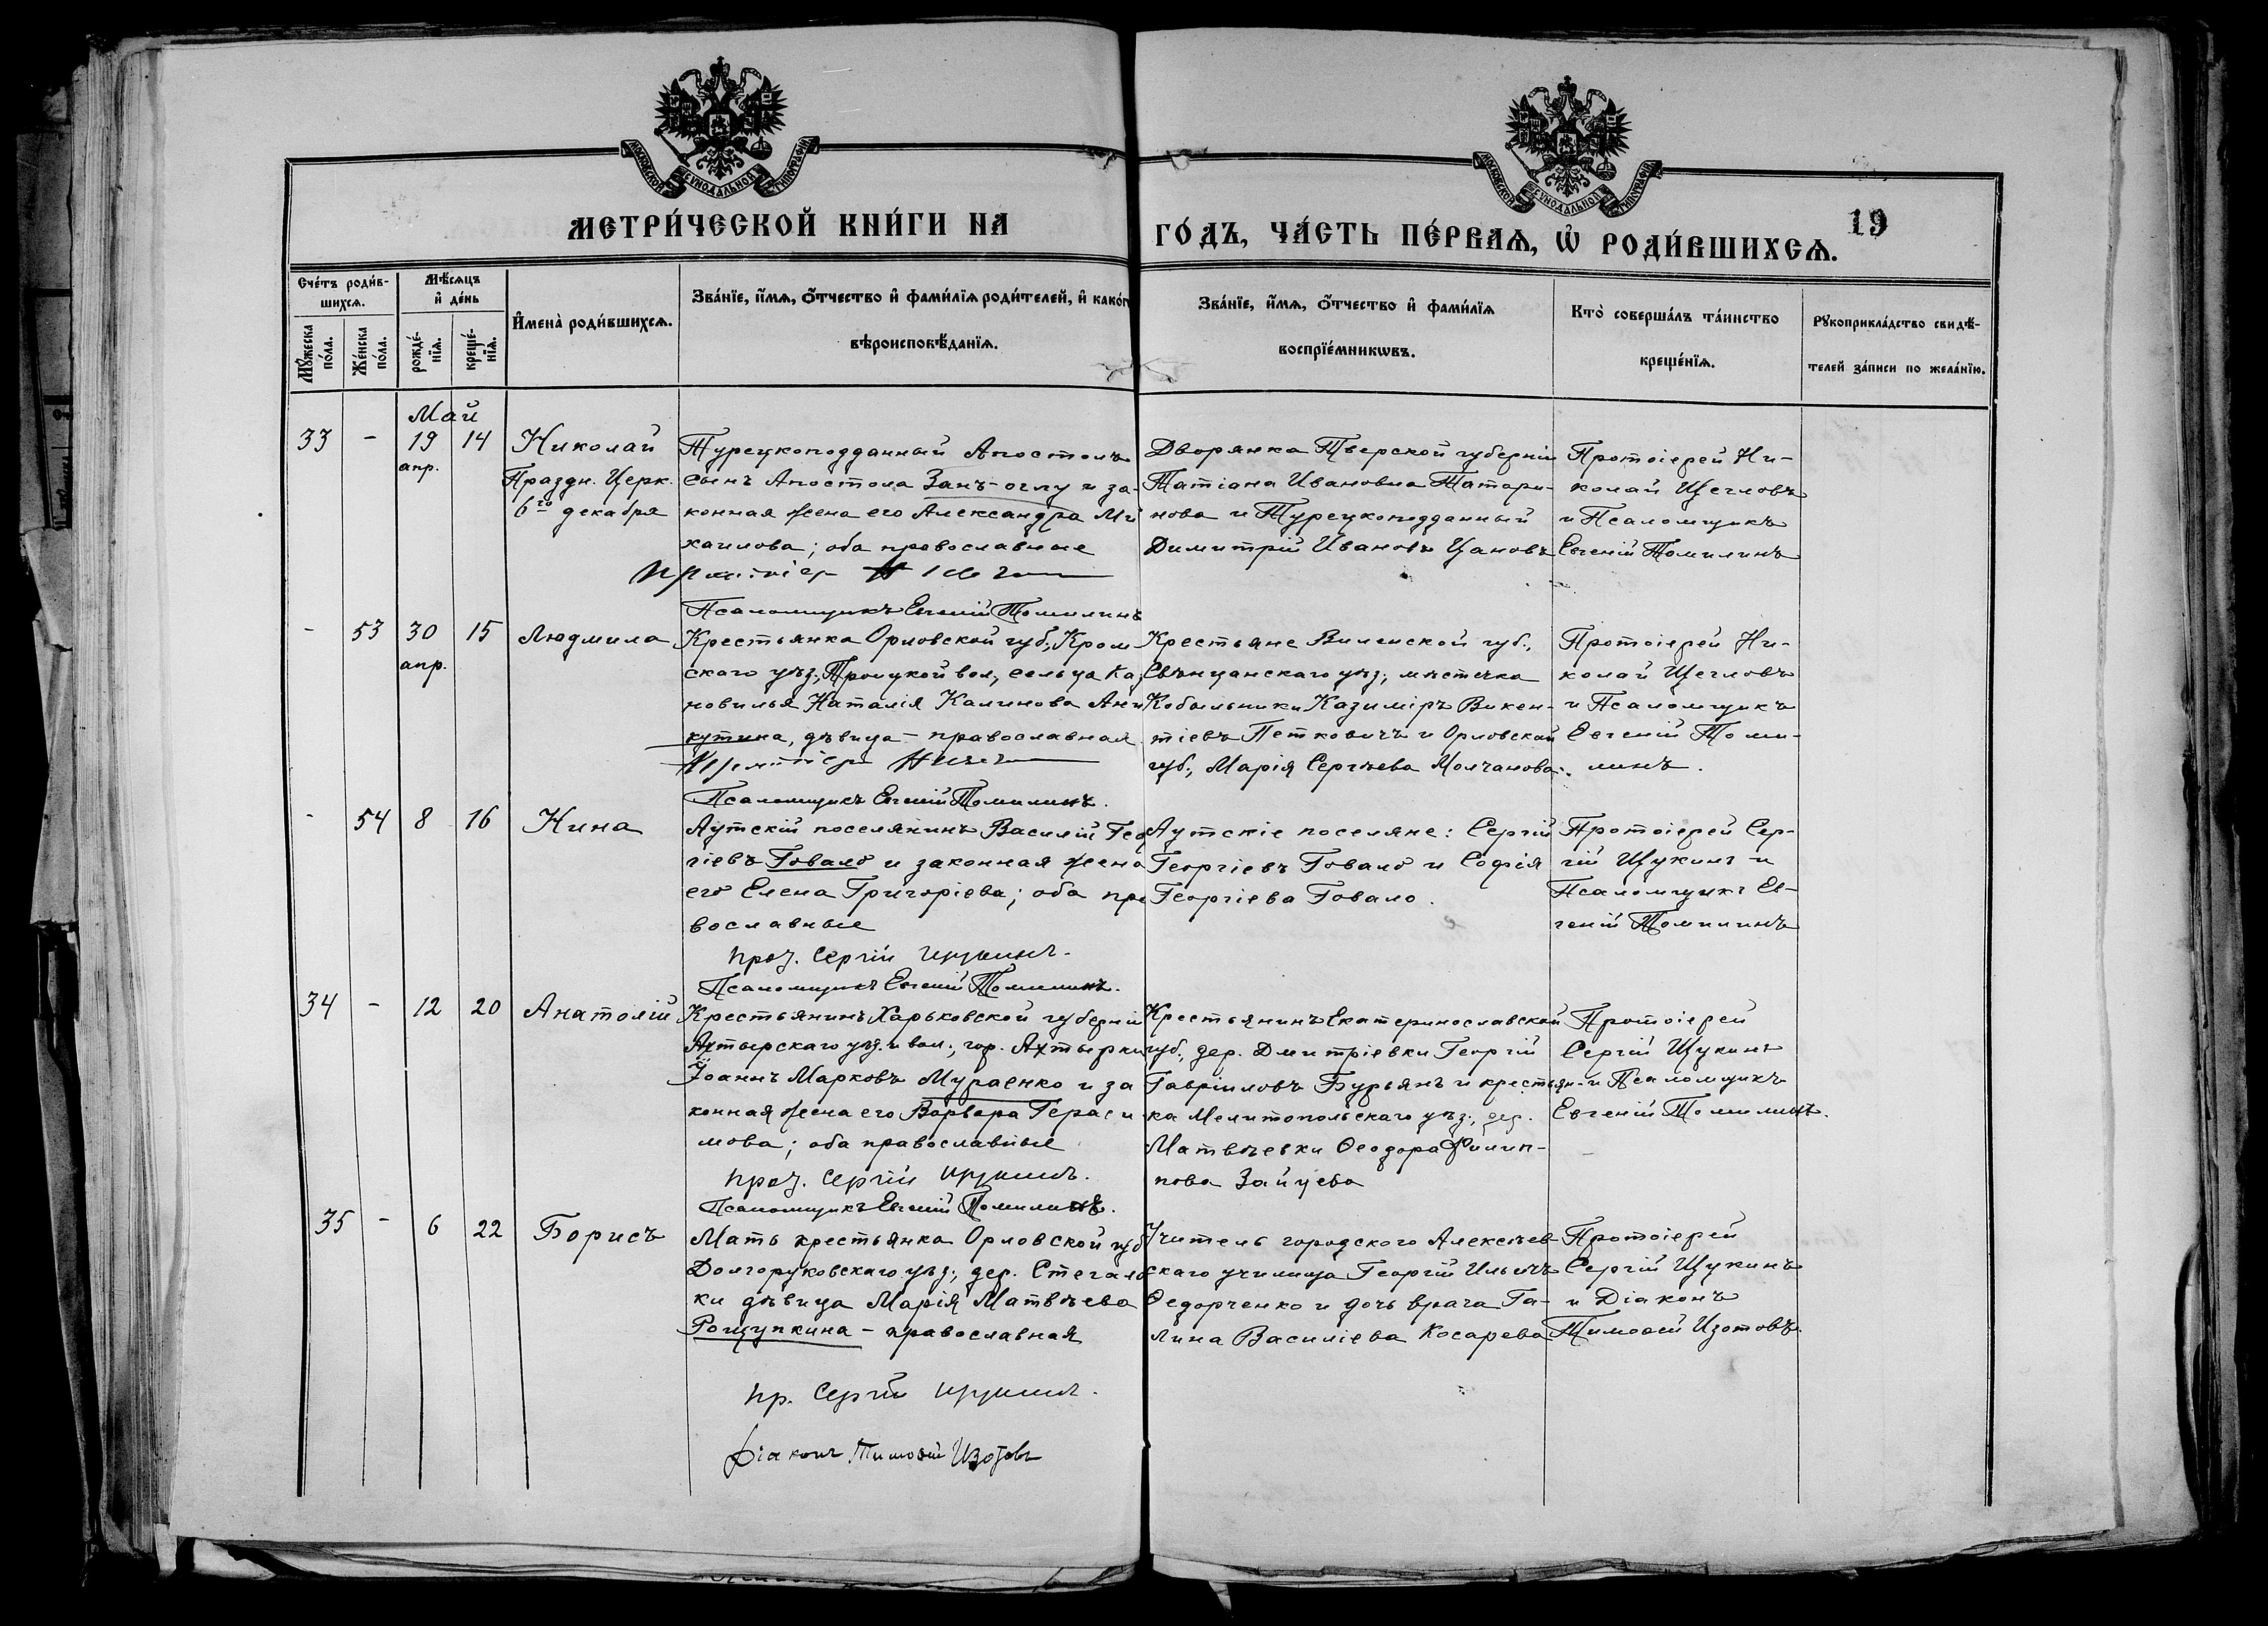 МОСКОВСКОЙ СѴНОДАЛЬНОЙ ТИПОГРАФІИ
МОСКОВСКОЙ СѴНОДАЛЬНОЙ ТИПОГРАФІИ
МЕТРИ́ЧЕСКОЙ КНИ́ГИ НА ГО́ДЪ, ЧА́СТЬ ПЕ́РВАѦ, Ѽ РОДИ́ВШИХСѦ.
19
Сче́тъ роди́в-
шихсѧ.
Мꙋ́жеска
по́ла.
Же́нска
по́ла.
Мѣ́сѧцъ
и҆ де́нь
рожде́-
нїѧ.
креще́-
нїѧ.
И҆мена̀ роди́вшихсѧ.
Зва́нїе, и҆́мѧ, ѻ҆́тчество и҆ фами́лїѧ роди́телей, и҆ како́г
вѣроисповѣ́данїѧ.
Зва́нїе, и҆́мѧ, ѻ҆́тчество и҆ фами́лїѧ
воспрїе́мникѡвъ.
Кто̀ соверша́лъ та́инство
креще́нїѧ.
Рꙋкоприкла́дство свидѣ́-
телей за́писи по жела́нїю.
Май
33 - 19 14 Николай
апр.
Праздн. Церк.
6го декабря
Турецкоподданный Апостолъ
сынъ Апостола Занъ-оглу и за-
конная жена его Александра Ми
хаилова; оба православные
Псаломщикъ Евгеній Томилинъ
Дворянка Тверской губерніи
Татіана Ивановна Татари-
нова и Турецкоподданный
Димитрій Ивановъ Цановъ
Протоіерей Ни-
колай Щегловъ
и Псаломщикъ
Евгеній Томилинъ
- 53 30 15 Людмила
апр.
Крестьянка Орловской губ., Кром-
скаго уѣз., Троицкой вол., сельца Ка
новилья Наталія Калинова Ани
кутина, дѣвица - православная
Псаломщикъ Евгеній Томилинъ.
Крестьяне Виленской губ.,
Свѣнцянскаго уѣз., мѣстечка
Кобыльники Казиміръ Викен-
тіевъ Петковичъ и Орловской
губ., Марія Сергѣева Молчанова.
Протоіерей Ни-
колай Щегловъ
и Псаломщикъ
Евгеній Томи-
линъ.
- 54 8 16 Нина
Аутскій поселянинъ Василій Геор
гіевъ Говало и законная жена
его Елена Григоріева; оба пра
вославные
прот. Сергій Щукинъ.
Псаломщикъ Евгеній Томилинъ.
Аутскіе поселяне: Сергій
Георгіевъ Говало и Софія
Георгіева Говало.
Протоіерей Сер-
гій Щукинъ и
Псаломщикъ Ев-
геній Томилинъ
34 - 12 20 Анатолій
Крестьянинъ Харьковской губерніи
Ахтырскаго уѣз. и вол., гор. Ахтырки
Іоаннъ Марковъ Мураенко и за
конная жена его Варвара Гераси
мова; оба православные
прот. Сергій Щукинъ.
Псаломщикъ Евгеній Томилинъ.
Крестьянинъ Екатеринославской
губ., дер. Дмитріевки Георгій
Гавріиловъ Бурьянъ и крестьян-
ка Мелитопольскаго уѣз., дер.
Матвѣевки Ѳеодора Филип-
пова Зайцева
Протоіерей
Сергій Щукинъ
и Псаломщикъ
Евгеній Томилинъ.
35 - 6 22 Борисъ
Мать крестьянка Орловской губ
Долгоруковскаго уѣз., дер. Стегалов
ки дѣвица Марія Матвѣева
Рощупкина - православная
пр. Сергій Щукинъ.
Діаконъ Тимоѳей Изотовъ
Учитель городского Алексѣев-
скаго училища Георгій Ильичъ
Ѳедорченко и дочь врача Га-
лина Василіева Косарева
Протоіерей
Сергій Щукинъ
и Діаконъ
Тимоѳей Изотовъ.